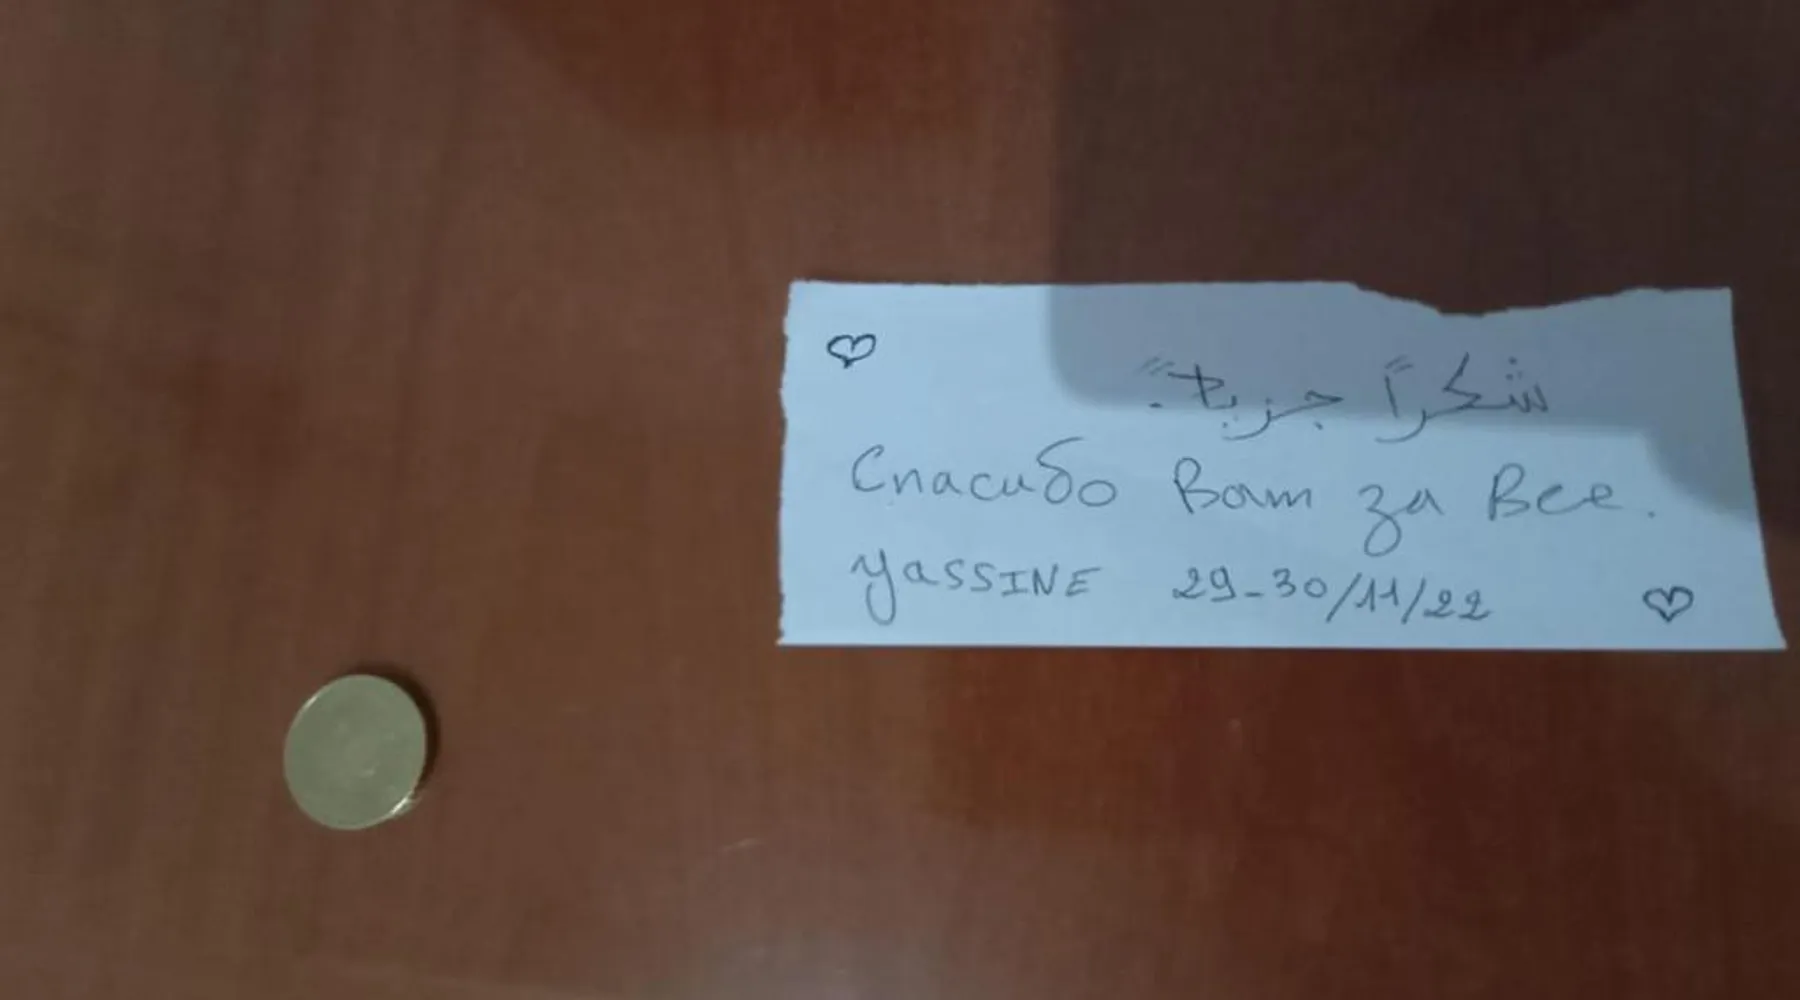 شكراً جزيلاً.
Спасибо Вам за Все.
yassine 29-30/11/22